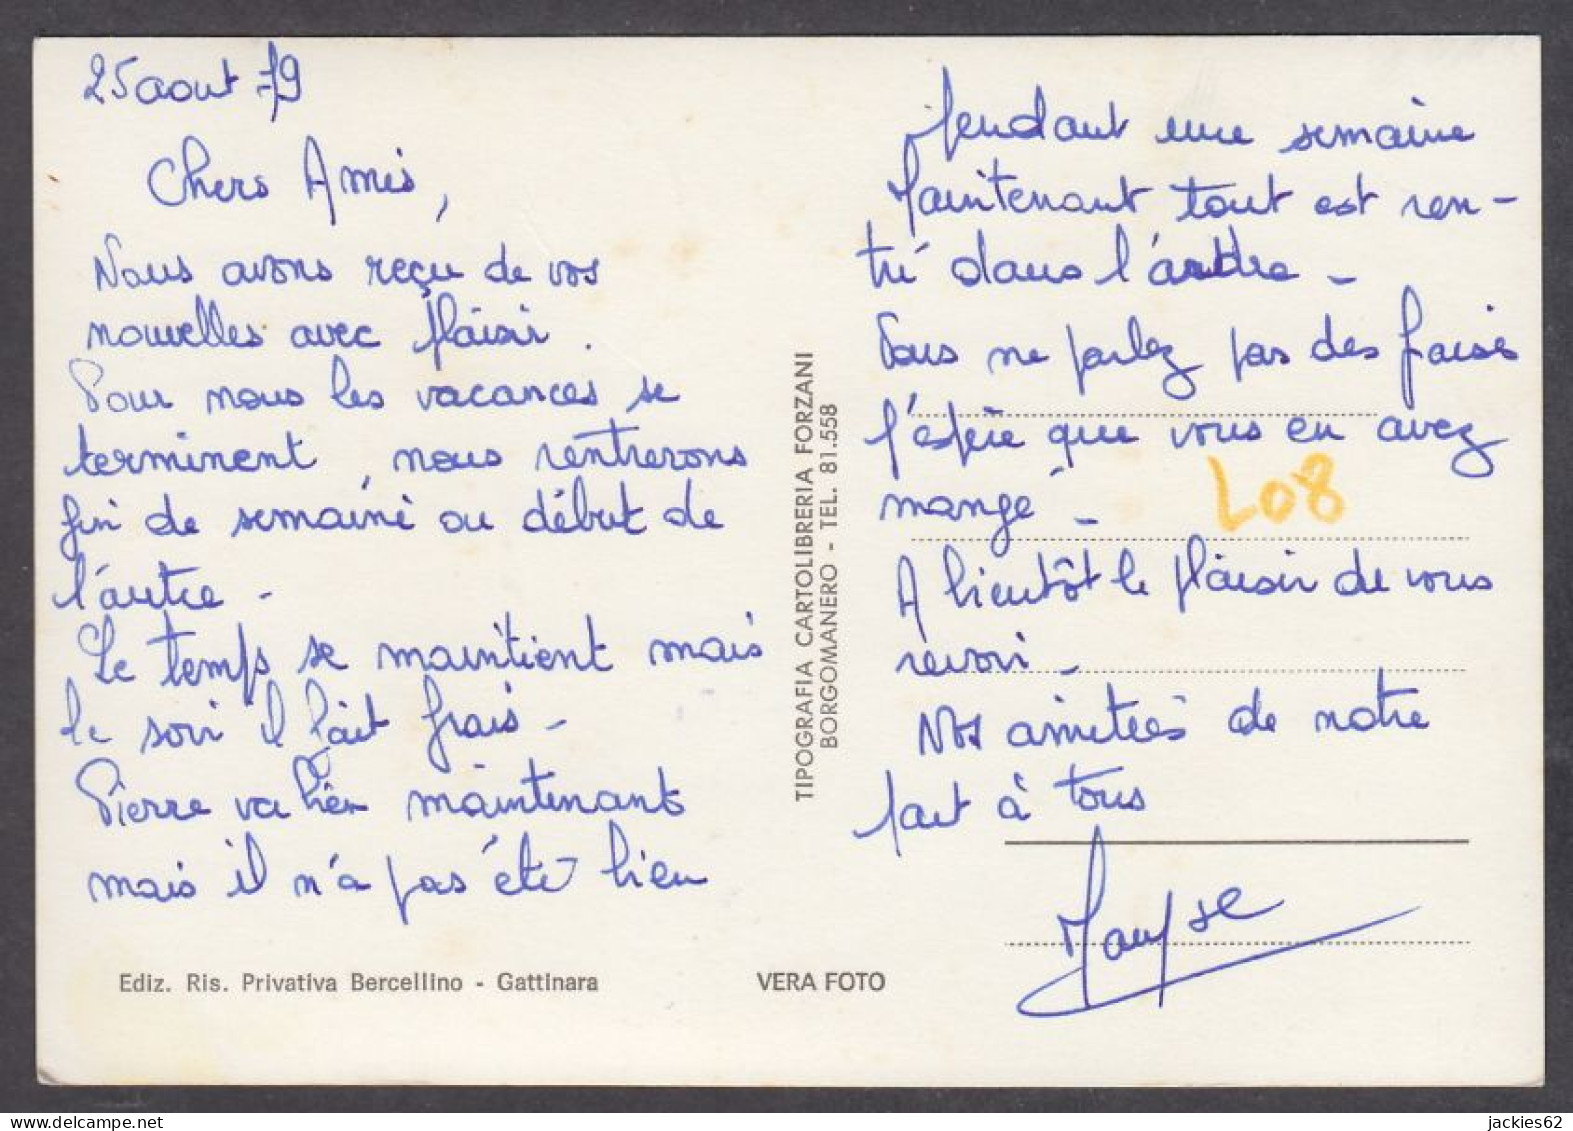 25 aout 79
Chers Amis,
Nous avons reçu de vos
nouvelles avec plaisir.
Pour nous les vacances se
terminent, nous rentrerons
fin de semaine ou début de
l'autre -
Le temps se maintient mais
le soir il fait frais -
Pierre va bien maintenant
mais il n'a pas été bien
pendant une semaine
Maintenant tout est ren-
tré dans l'ordre -
Vous ne parlez pas des
J'espère que vous en avez
mangé -
A bientôt le plaisir de vous
revoir -
Nos amitiés de notre
part à tous
L08
TIPOGRAFIA CARTOLIBRERIA FORZANI
BORGOMANERO - TEL. 81.558
Ediz. Ris. Privativa Bercellino - Gattinara
VERA FOTO
jackies62